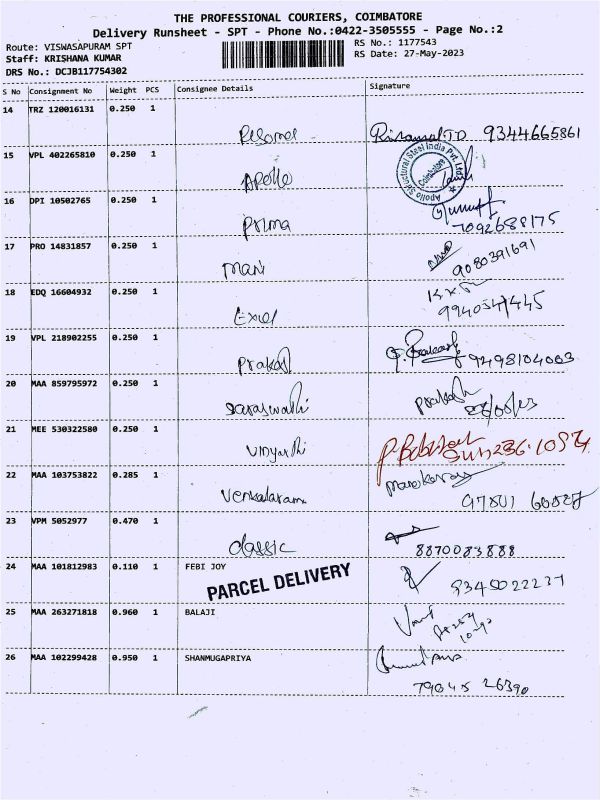 THE PROFESSIONAL COURIERS, COIMBATORE
Delivery Runsheet - SPT - Phone No.:0422-3505555 - Page No.:2
Route: VISWASAPURAM SPT
RS No.: 1177543
Staff: KRISHANA KUMAR
RS Date: 27-May-2023
DRS No.: DCJB117754302
S No Consignment No Weight PCS Consignee Details Signature
14 TRZ 120016131 0.250 1
9344665861
15 VPL 402265810 0.250 1
Apollo Structural Steel India Pvt. Ltd.
Coimbatore
Apollo
16 DPI 10502765 0.250 1
Prima
7092688175
17 PRO 14831857 0.250 1
Mani
9080391691
18 EDQ 16604932 0.250 1
Excel
19 VPL 218902255 0.250 1
Prakash
9498104003
20 MAA 859795972 0.250 1
Saraswathi
Prakash
21 MEE 530322580 0.250 1
22 MAA 103753822 0.285 1
Venkataraman
23 VPM 5052977 0.470 1
classic
8870083888
24 MAA 101812983 0.110 1 FEBI JOY
PARCEL DELIVERY
9345022237
25 MAA 263271818 0.960 1 BALAJI
26 MAA 102299428 0.950 1 SHANMUGAPRIYA
79045 26390